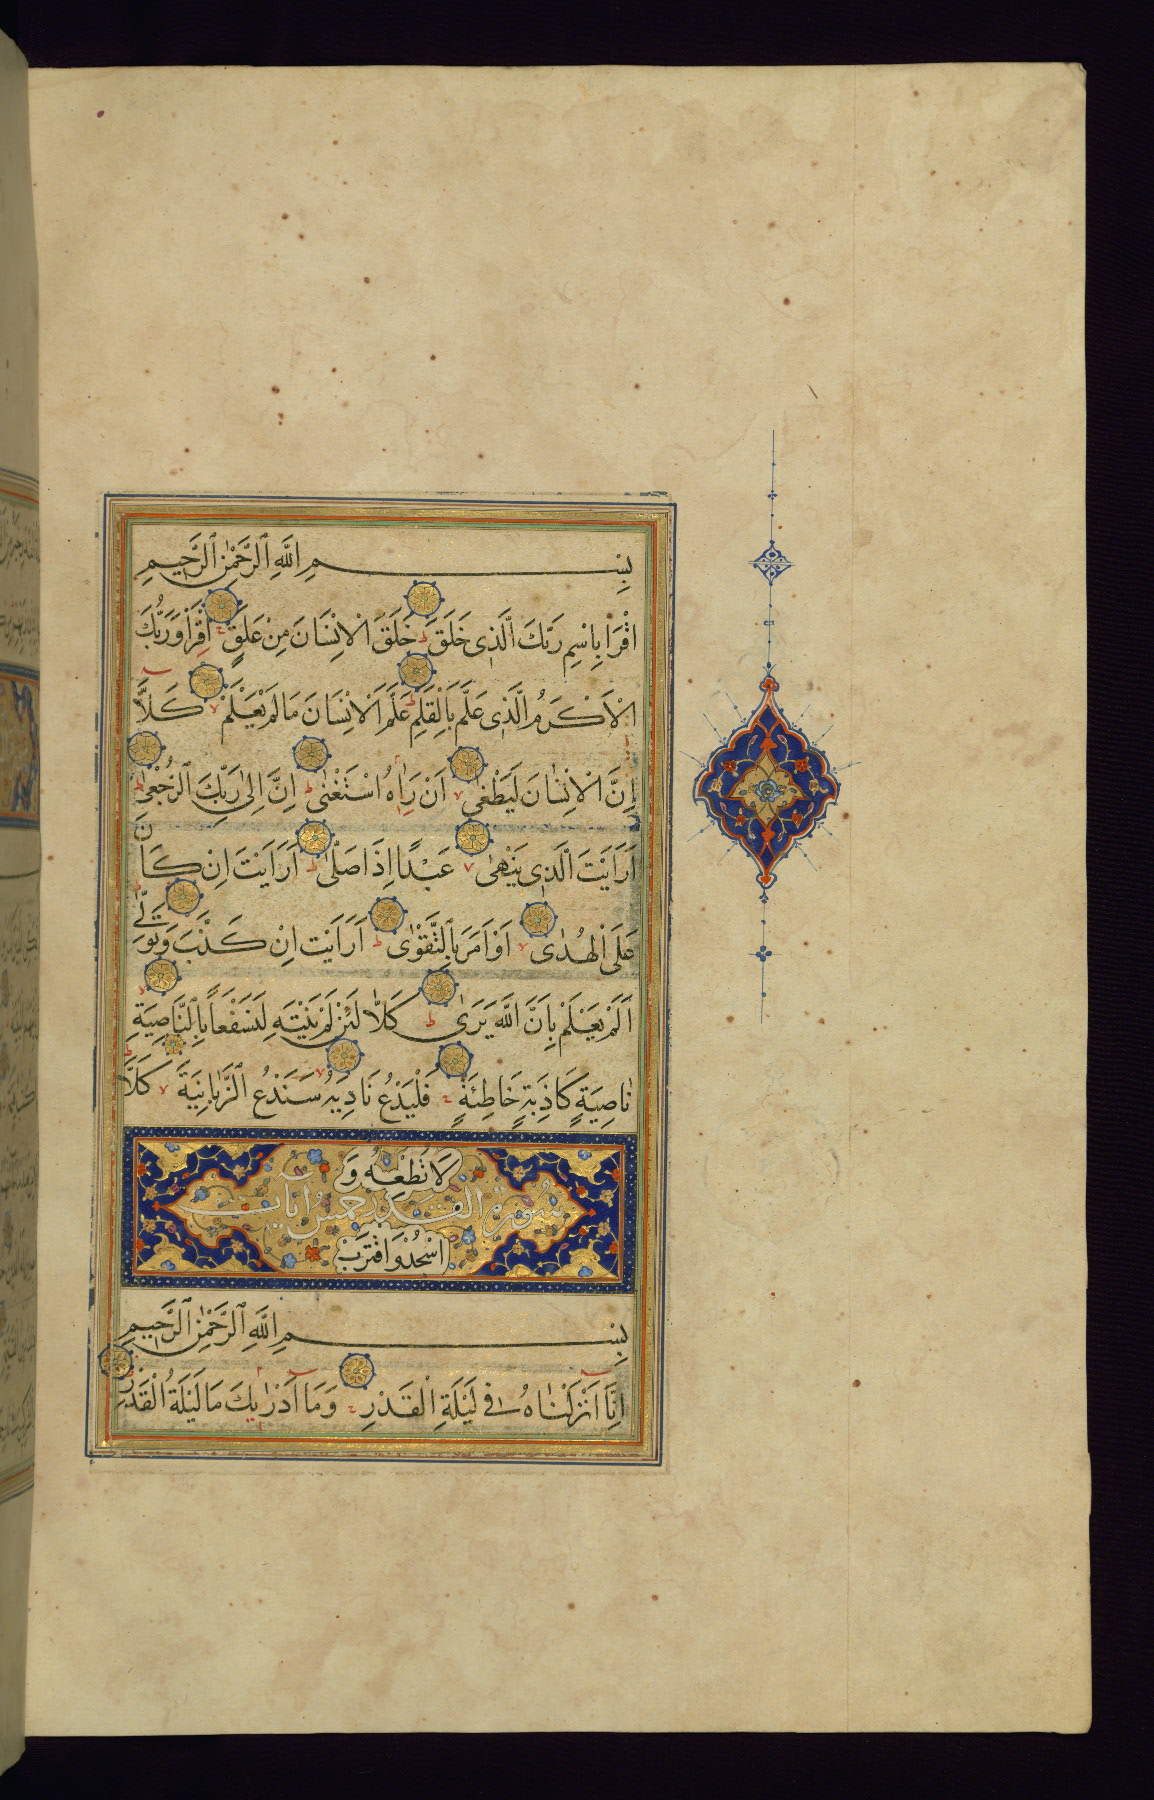 بِسْمِ اللَّهِ الرَّحْمٰنِ الرَّحِيمِ
اقْرَأْ بِاسْمِ رَبِّكَ الَّذِی خَلَقَ خَلَقَ الْاِنْسَانَ مِنْ عَلَقٍ اِقْرَأْ وَرَبُّكَ
الْاَكْرَمُ الَّذِی عَلَّمَ بِالْقَلَمِ عَلَّمَ الْاِنْسَانَ مَا لَمْ يَعْلَمْ كَلَّا
اِنَّ الْاِنْسَانَ لَيَطْغٰی اَنْ رَاٰهُ اسْتَغْنٰی اِنَّ اِلٰی رَبِّكَ الرُّجْعٰی
اَرَاَيْتَ الَّذِی يَنْهٰی عَبْدًا اِذَا صَلّٰی اَرَاَيْتَ اِنْ كَانَ
عَلَی الْهُدٰی اَوْ اَمَرَ بِالتَّقْوٰی اَرَاَيْتَ اِنْ كَذَّبَ وَتَوَلّٰی
اَلَمْ يَعْلَمْ بِاَنَّ اللَّهَ يَرٰی كَلَّا لَئِنْ لَمْ يَنْتَهِ لَنَسْفَعاً بِالنَّاصِيَةِ
نَاصِيَةٍ كَاذِبَةٍ خَاطِئَةٍ فَلْيَدْعُ نَادِيَهُ سَنَدْعُ الزَّبَانِيَةَ كَلَّا
لَا تُطِعْهُ وَ
سورة القدر خمس آيات
اسْجُدْ وَاقْتَرِبْ
بِسْمِ اللَّهِ الرَّحْمٰنِ الرَّحِيمِ
اِنَّا اَنْزَلْنَاهُ فِی لَيْلَةِ الْقَدْرِ وَمَا اَدْرٰيكَ مَا لَيْلَةُ الْقَدْرِ